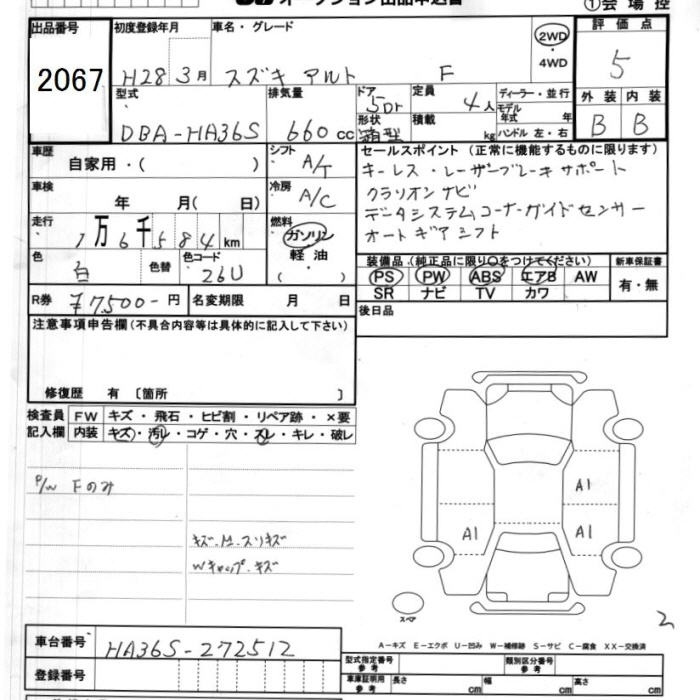 ①会場控
出品番号 初度登録年月 車名・グレード 2WD ・ 4WD 評価点
2067 H28 3月 スズキ アルト F 5
型式 排気量 ドア 定員 ディーラー・並行 外装 内装
DBA-HA36S 660cc 5Dr 4人 モデル年式 年
形状 箱型 積載 kg ハンドル 左・右 B B
車歴 自家用・( ) シフト A/T
車検 年 月( 日) 冷房 A/C
走行 1万6千584km 燃料 ガソリン・軽油・
色 白 色替 色コード 26U
R券 ¥7500-円 名変期限 月 日
セールスポイント (正常に機能するものに限ります)
キーレス・レーザーブレーキサポート
クラリオンナビ
データシステムコーナーガイドセンサー
オートギアシフト
装備品(純正品に限り○をつけてください) 新車保証書
PS PW ABS エアB AW 有・無
SR ナビ TV カワ
後日品
注意事項申告欄(不具合内容等は具体的に記入して下さい)
修復歴 有 〔箇所 〕
検査員 FW キズ・飛石・ヒビ割・リペア跡・×要
記入欄 内装 キズ・汚レ・コゲ・穴・スレ・キレ・破レ
P/W Fのみ
キズ・M・スリキズ
Wキャップ・キズ
A1
A1 A1
スペア
2
車台番号 HA36S-272512
登録番号
A-キズ E-エクボ U-凹み W-補修跡 S-サビ C-腐食 XX-交換済
型式指定番号 参考 類別区分番号 参考
車庫証明用 参考 長さ cm 幅 cm 高さ cm